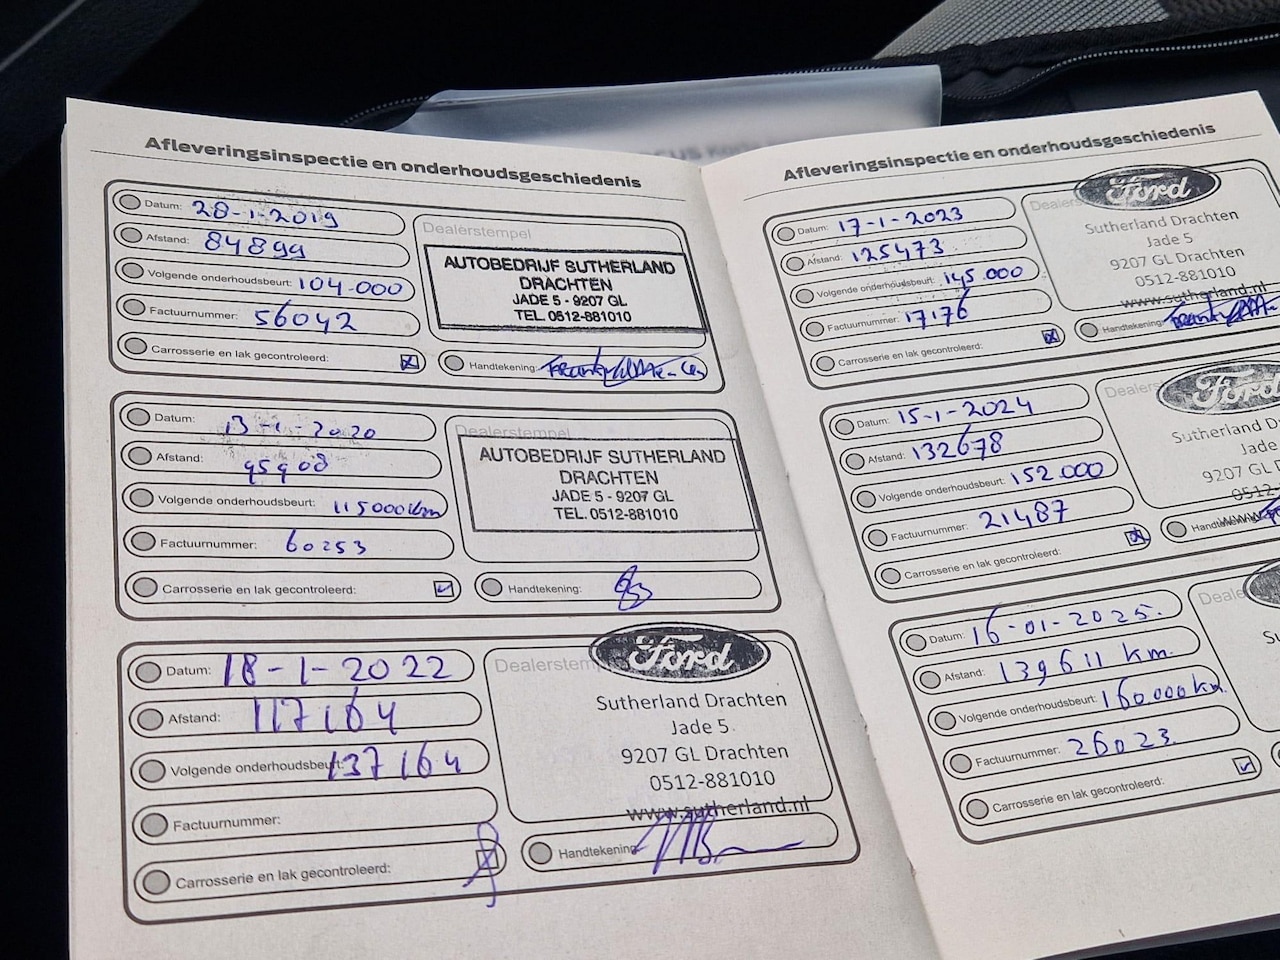 Afleveringsinspectie en onderhoudsgeschiedenis
Datum: 28-1-2019
Afstand: 84899
Volgende onderhoudsbeurt: 104.000
Factuurnummer: 56042
Carrosserie en lak gecontroleerd:
Dealerstempel
AUTOBEDRIJF SUTHERLAND
DRACHTEN
JADE 5 - 9207 GL
TEL. 0512-881010
Handtekening:
Datum: 13-1-2020
Afstand: 95908
Volgende onderhoudsbeurt: 115000km
Factuurnummer: 60253
Carrosserie en lak gecontroleerd:
Dealerstempel
AUTOBEDRIJF SUTHERLAND
DRACHTEN
JADE 5 - 9207 GL
TEL. 0512-881010
Handtekening:
Datum: 18-1-2022
Afstand: 117164
Volgende onderhoudsbeurt: 137164
Factuurnummer:
Carrosserie en lak gecontroleerd:
Dealerstem
Ford
Sutherland Drachten
Jade 5
9207 GL Drachten
0512-881010
www.sutherland.nl
Handtekening
Afleveringsinspectie en onderhoudsgeschiedenis
Datum: 17-1-2023
Afstand: 125473
Volgende onderhoudsbeurt: 145.000
Factuurnummer: 17176
Carrosserie en lak gecontroleerd:
Dealers
Ford
Sutherland Drachten
Jade 5
9207 GL Drachten
0512-881010
www.sutherland.nl
Handtekening:
Datum: 15-1-2024
Afstand: 132678
Volgende onderhoudsbeurt: 152.000
Factuurnummer: 21487
Carrosserie en lak gecontroleerd:
Dealers
Ford
Sutherland D
Jade
9207 GL
0512-
www.
Handtekening
Datum: 16-01-2025.
Afstand: 139611 km.
Volgende onderhoudsbeurt: 160.000km.
Factuurnummer: 26023.
Carrosserie en lak gecontroleerd:
Deale